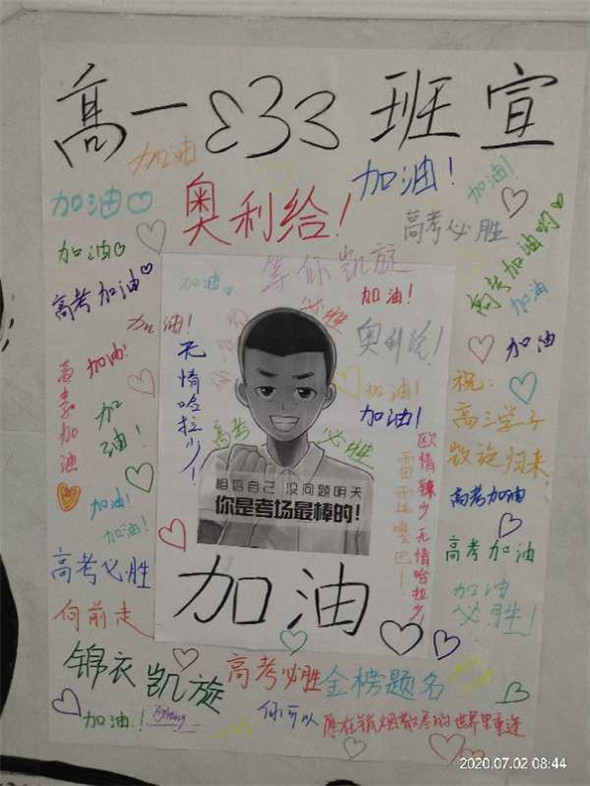 高一 333 班 宣
加油
加油
加油！
加油！
奥利给！
高考必胜
加油
高考加油哟
高考加油
等你凯旋
加油
加油！
加油
加油！
必胜
奥利给！
加油
无情哈拉少！
加油！
祝：
高三学子
凯旋归来
加油！
加油！
高考加油
加油！
高考
必胜
欧情辣少无情哈拉少！
高考加油
相信自己 没问题明天
你是考场最棒的！
加油！
加油！
高考加油
高考必胜
加油
必胜！
向前走
加油
锦衣凯旋
高考必胜
金榜题名
加油！
你可以
愿在硝烟散尽的世界里重逢
2020.07.02 08:44